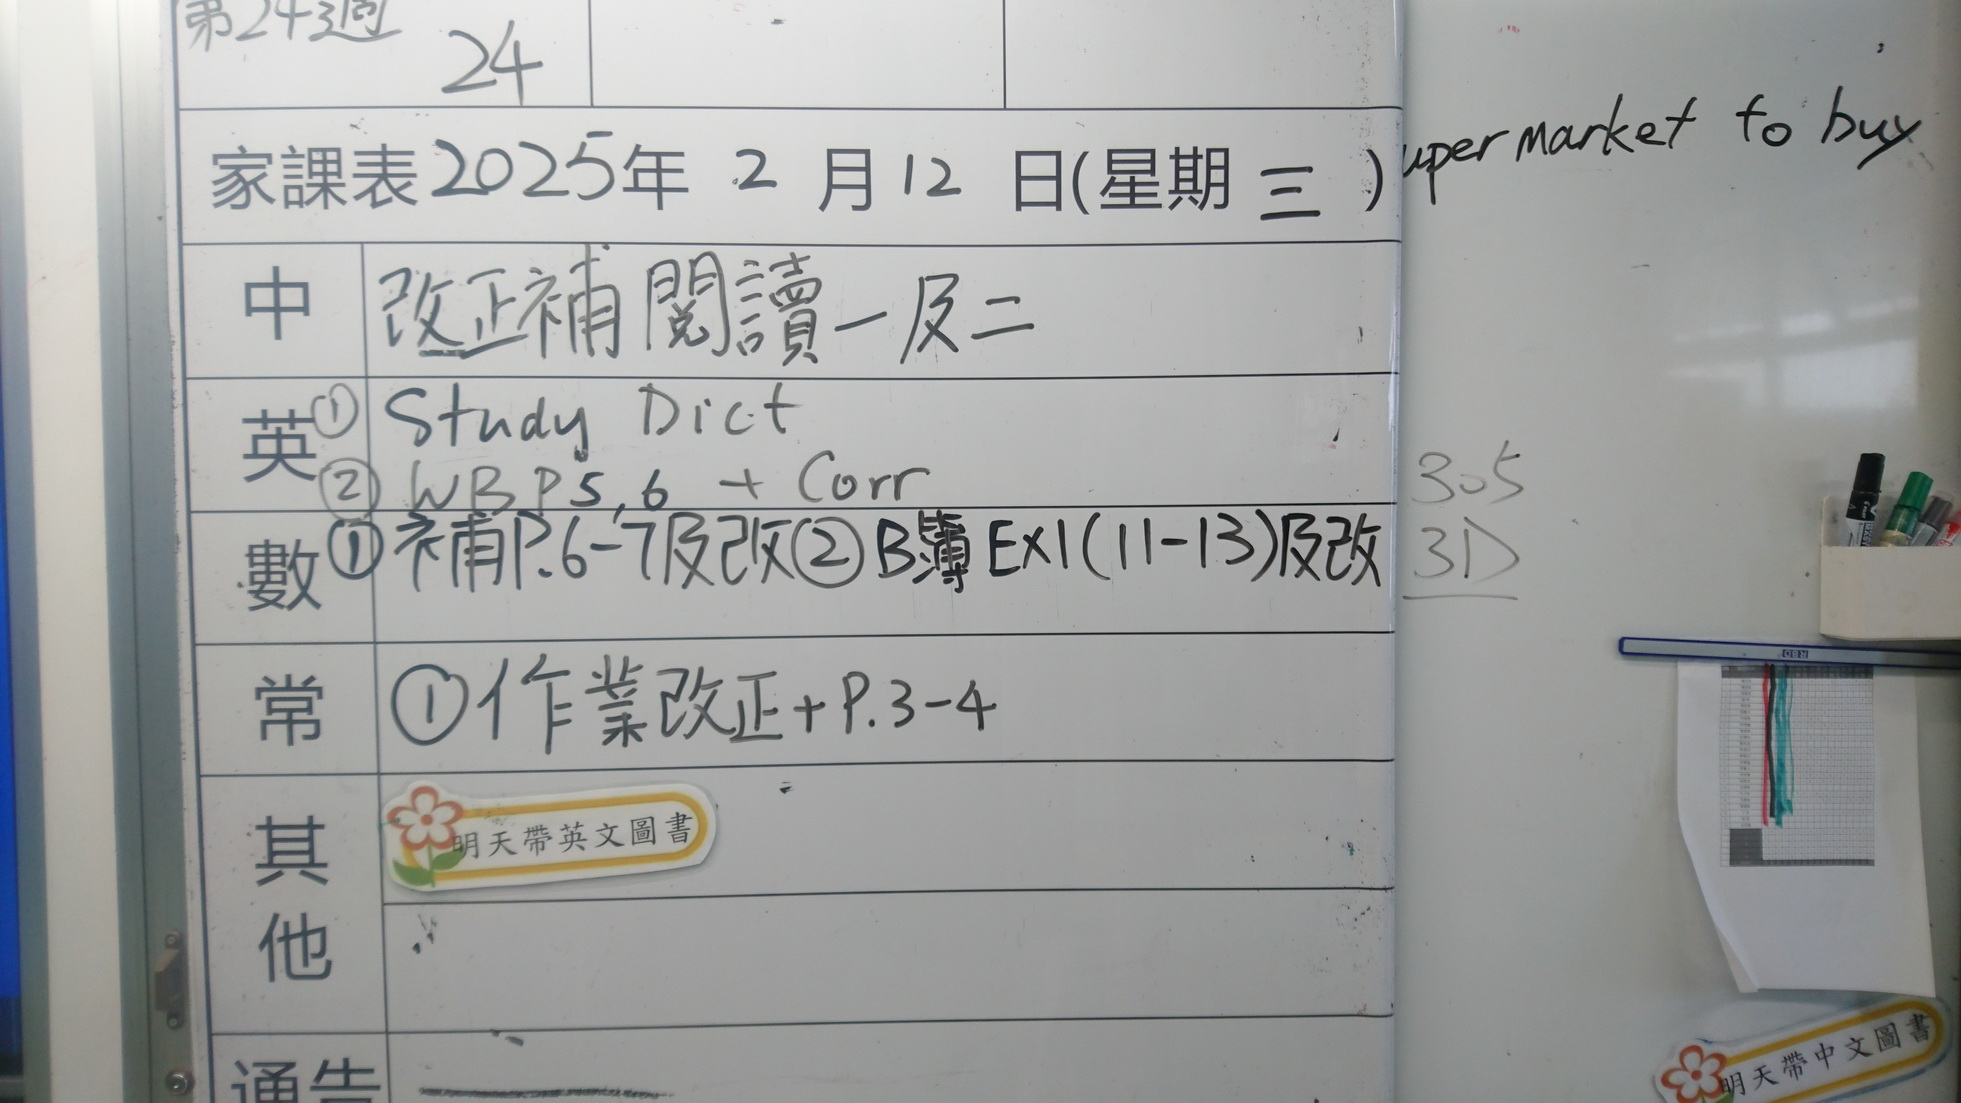 第24週
24
家課表2025年 2 月 12 日(星期 三 )
upermarket to buy
中 改正補閱讀一及二
英 ① Study Dict
② WB P5,6 + Corr
305
數 ① 補P.6-7及改 ② B簿 Ex1(11-13)及改
3D
常 ① 作業改正+P.3-4
其他 明天帶英文圖書
通告
明天帶中文圖書